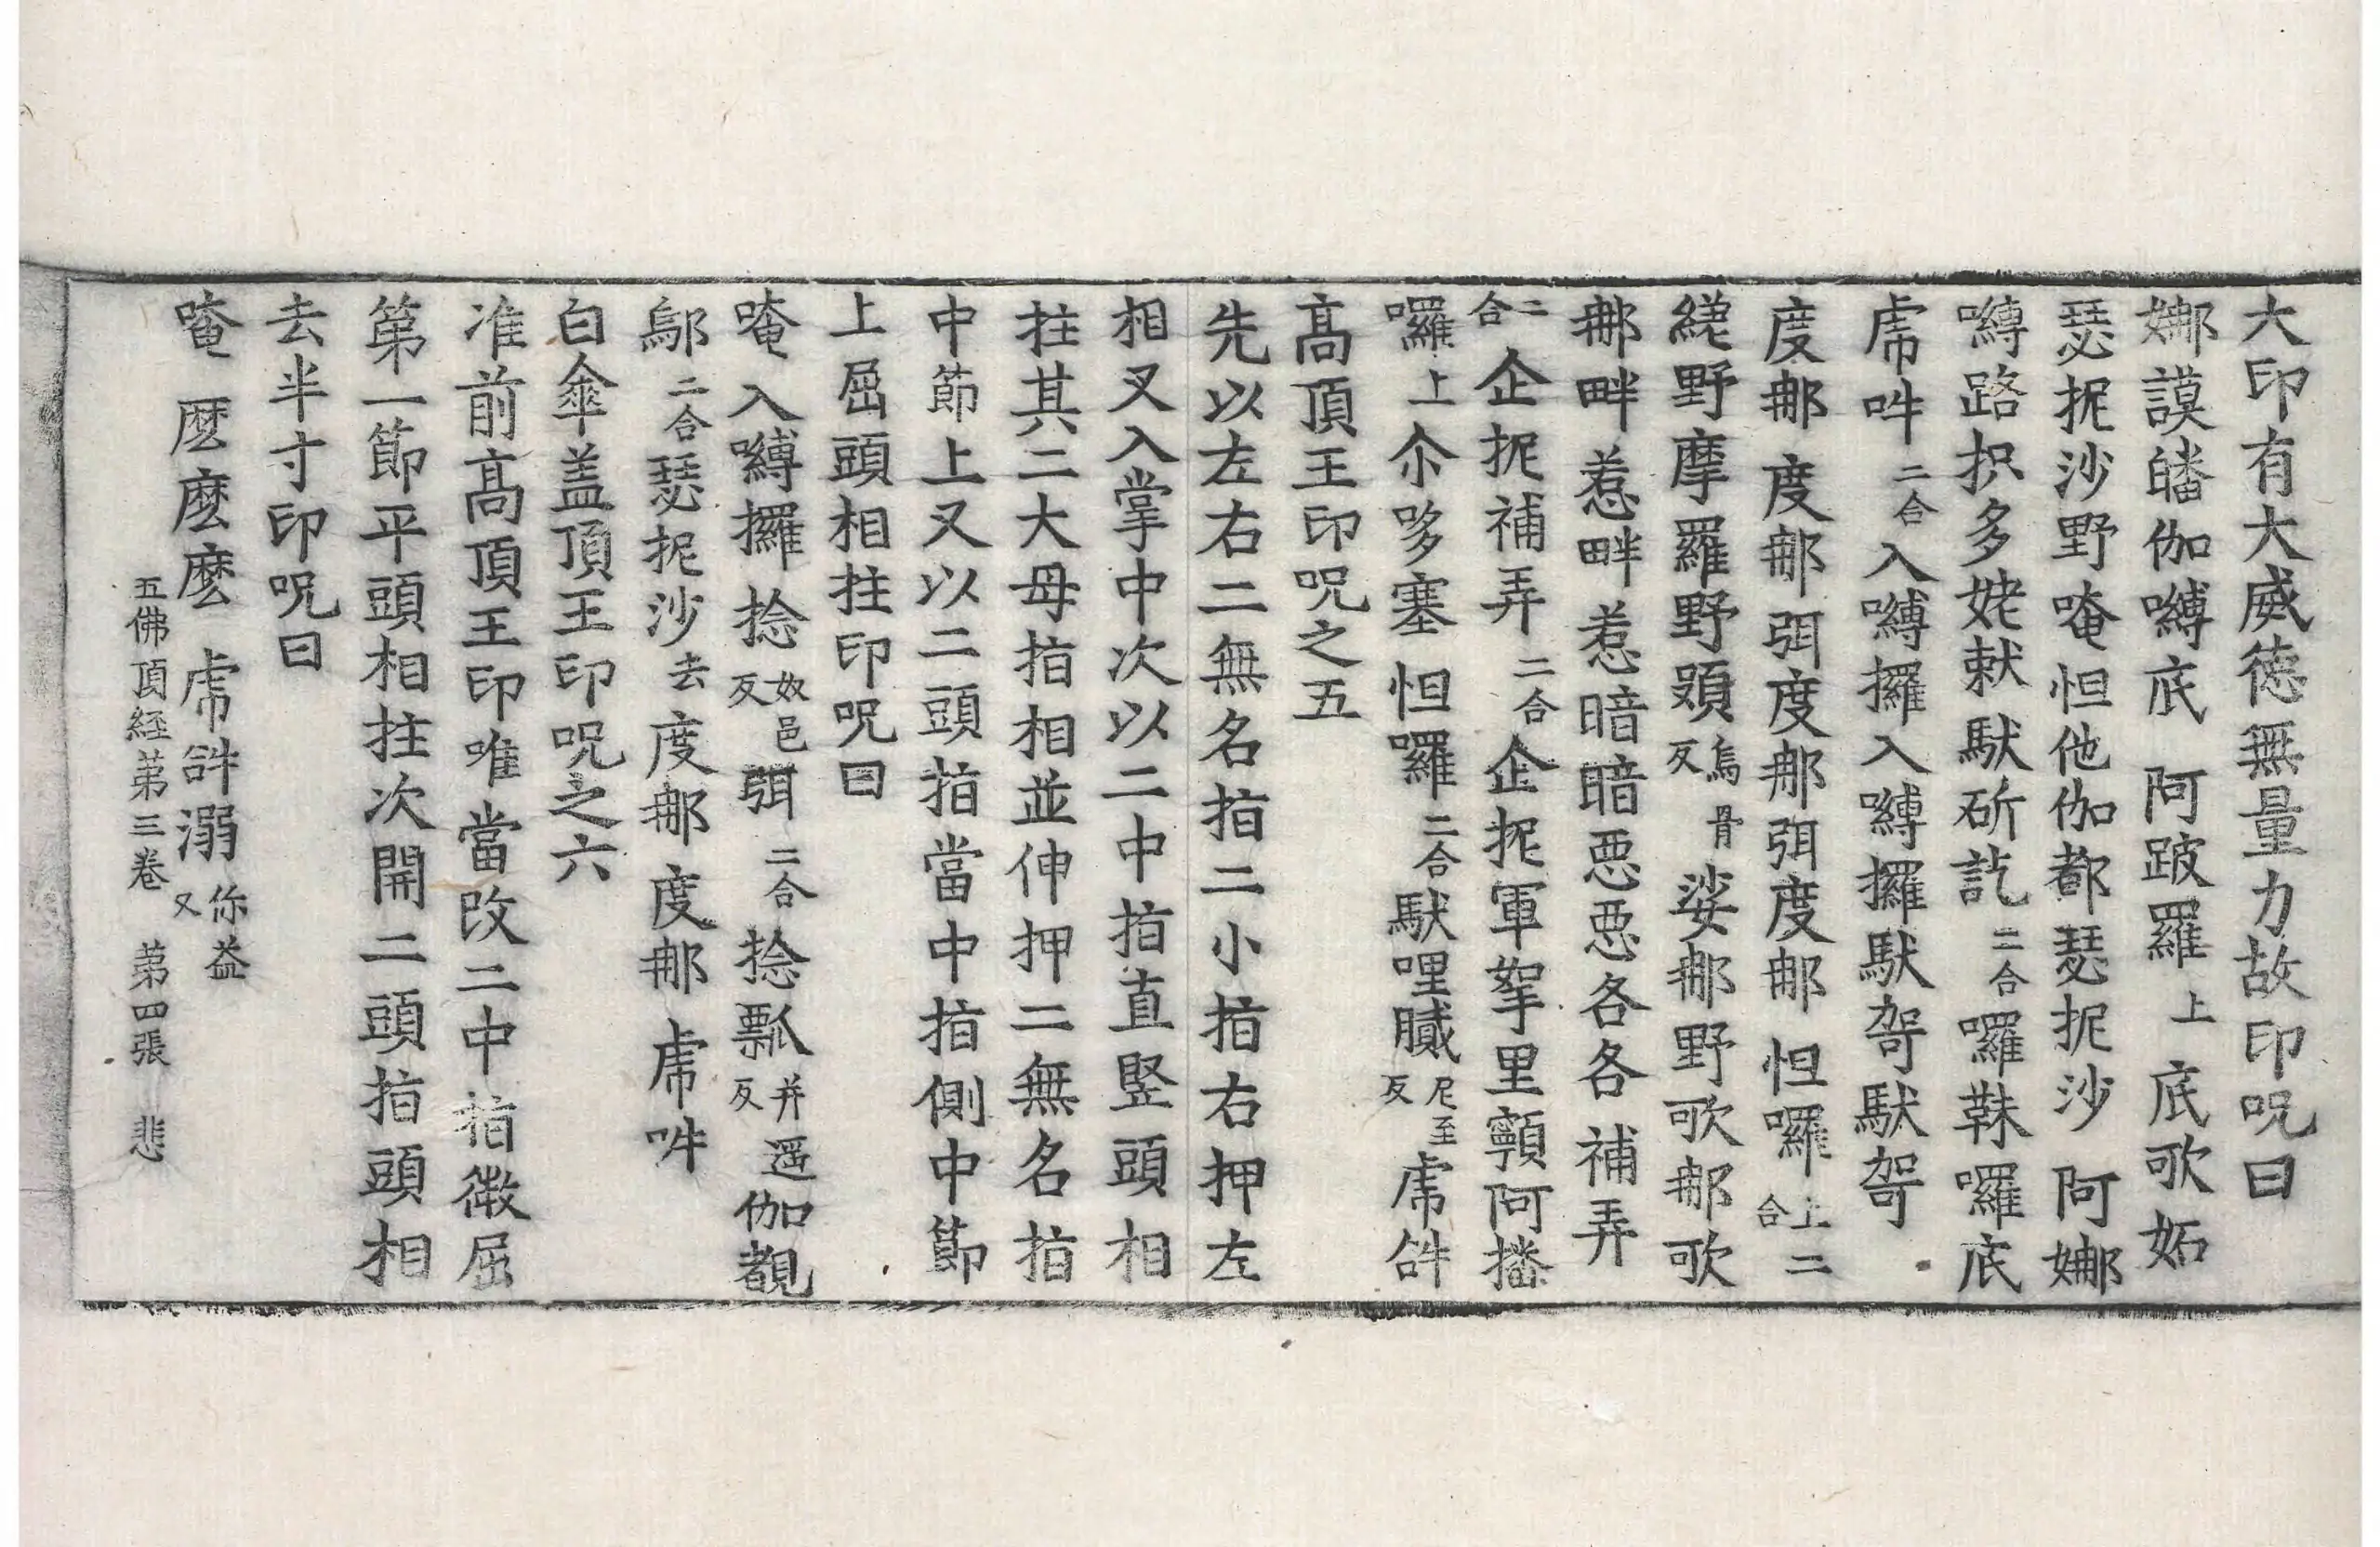 大印有大威德無量力故印呪曰
娜謨皤伽嚩底 阿跛羅上底歌妬
瑟抳沙野唵怛他伽都瑟抳沙 阿娜
嚩路枳多姥㗚馱斫訖二合囉靺囉底
虎吽二合入嚩攞入嚩攞馱䛾馱䛾
度那 度那弭度那弭度那 怛囉上二合
綩野摩羅野頞烏骨反娑那野歌那歌
那畔惹畔惹暗暗惡惡各各 補弄
二合企抳補弄二合企抳軍拏里顐阿播
囉上尒哆塞 怛囉二合馱哩膱尼至反虎𤙖
高頂王印呪之五
先以左右二無名指二小指右押左
相叉入掌中次以二中指直竪頭相
拄其二大母指相並伸押二無名指
中節上又以二頭指當中指側中節
上屈頭相拄印呪曰
唵 入嚩攞捻奴邑反弭二合捻瓢并遥反伽覩
鄔二合瑟抳沙去度那度那 虎吽
白傘盖頂王印呪之六
准前高頂王印唯當改二中指微屈
第一節平頭相拄次開二頭指頭相
去半寸印呪曰
唵 麽麽麽 虎𤙖溺你益又
五佛頂経第三卷 第四張 悲